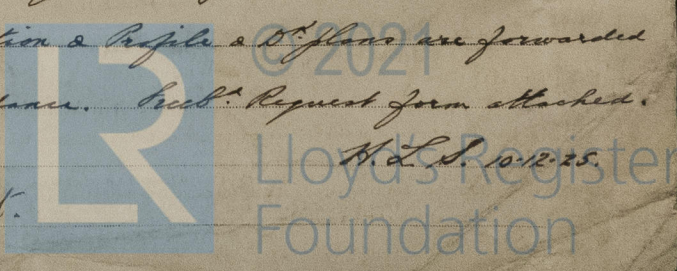 tion & Profile & Dk. plans are forwarded
© 2021
Request form attached.
H. L. S. 10-12-25.
LR
Lloyd's Register
Foundation